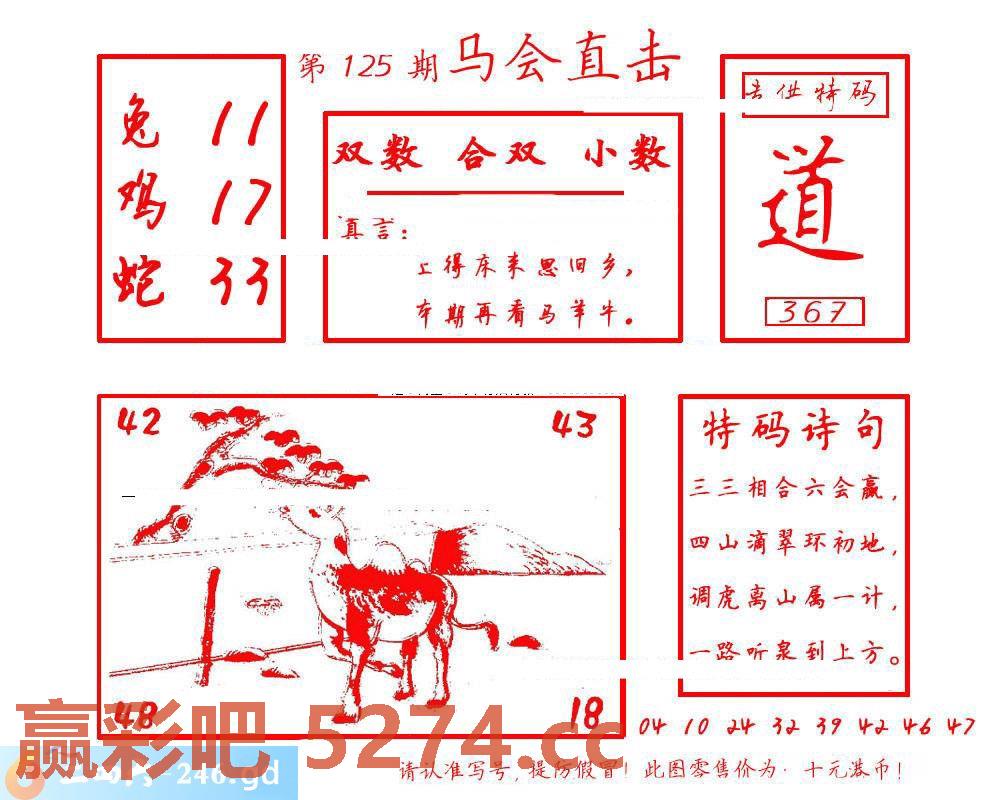 第 125 期 马会直击
兔 11
鸡 17
蛇 33
双数 合双 小数
真言：
上得床来思旧乡，
本期再看马羊牛。
特码
道
367
42 43
48 18
特码诗句
三三相合六会赢，
四山滴翠环初地，
调虎离山属一计，
一路听泉到上方。
04 10 24 32 39 42 46 47
赢彩吧 5274.cc
-246.gd
请认准写号，提防假冒！此图零售价为：十元港币！